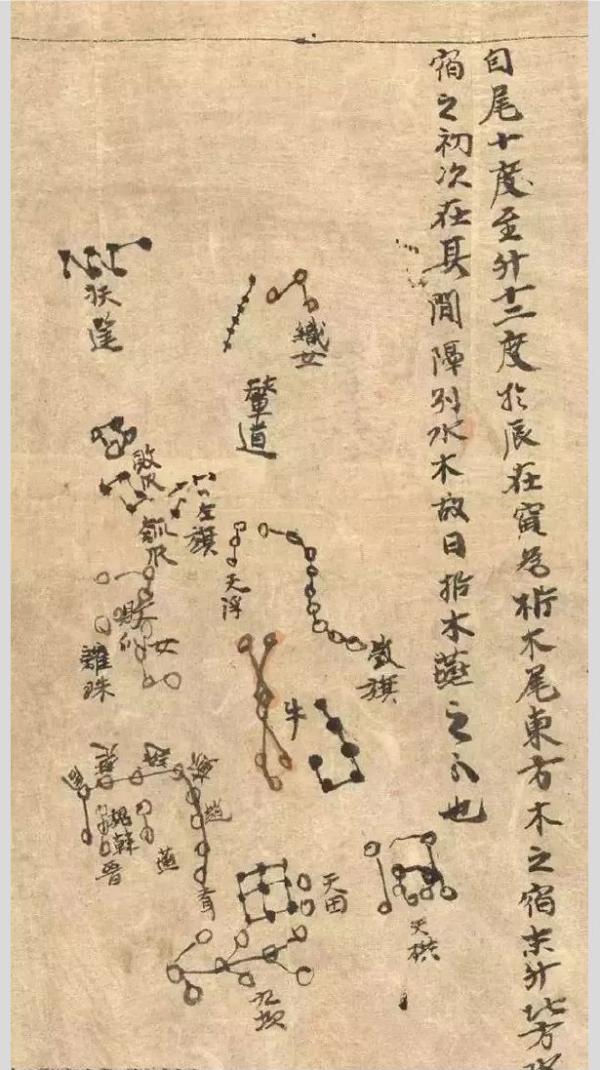 自尾十度至斗十二度於辰在寅為析木尾東方木之宿末斗北方水
宿之初次在其間隔別水木故曰析木燕之分也
織女
輦道
扶筐
敗瓜
瓠瓜
左旗
天浮
旗
女
離珠
牛
韓
晉
燕
天田
九坎
天